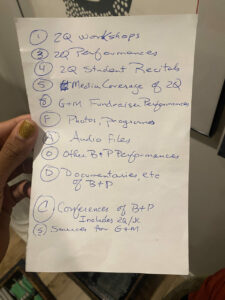 ① 2Q Workshops
③ 2Q Performances
④ 2Q Student Recitals
⑤ Media Coverage of 2Q
G+M Fundraiser Performances
Ⓕ Photos, Programs
Ⓐ Audio Files
Ⓞ Other B+P Performances
Ⓓ Documentaries etc
of B+P
Ⓒ Conferences of B+P
Includes 2Q/K
Ⓢ Services for G+M